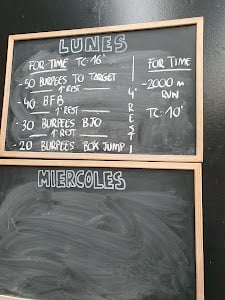 LUNES
FOR TIME TC·16'
-50 BURPEES TO TARGET
1' REST
-40 BFB
1' REST
-30 BURPEES BJO
1' REST
-20 BURPEES BOX JUMP
4' REST
FOR TIME
-2000 m
RUN
TC·10'
MIERCOLES